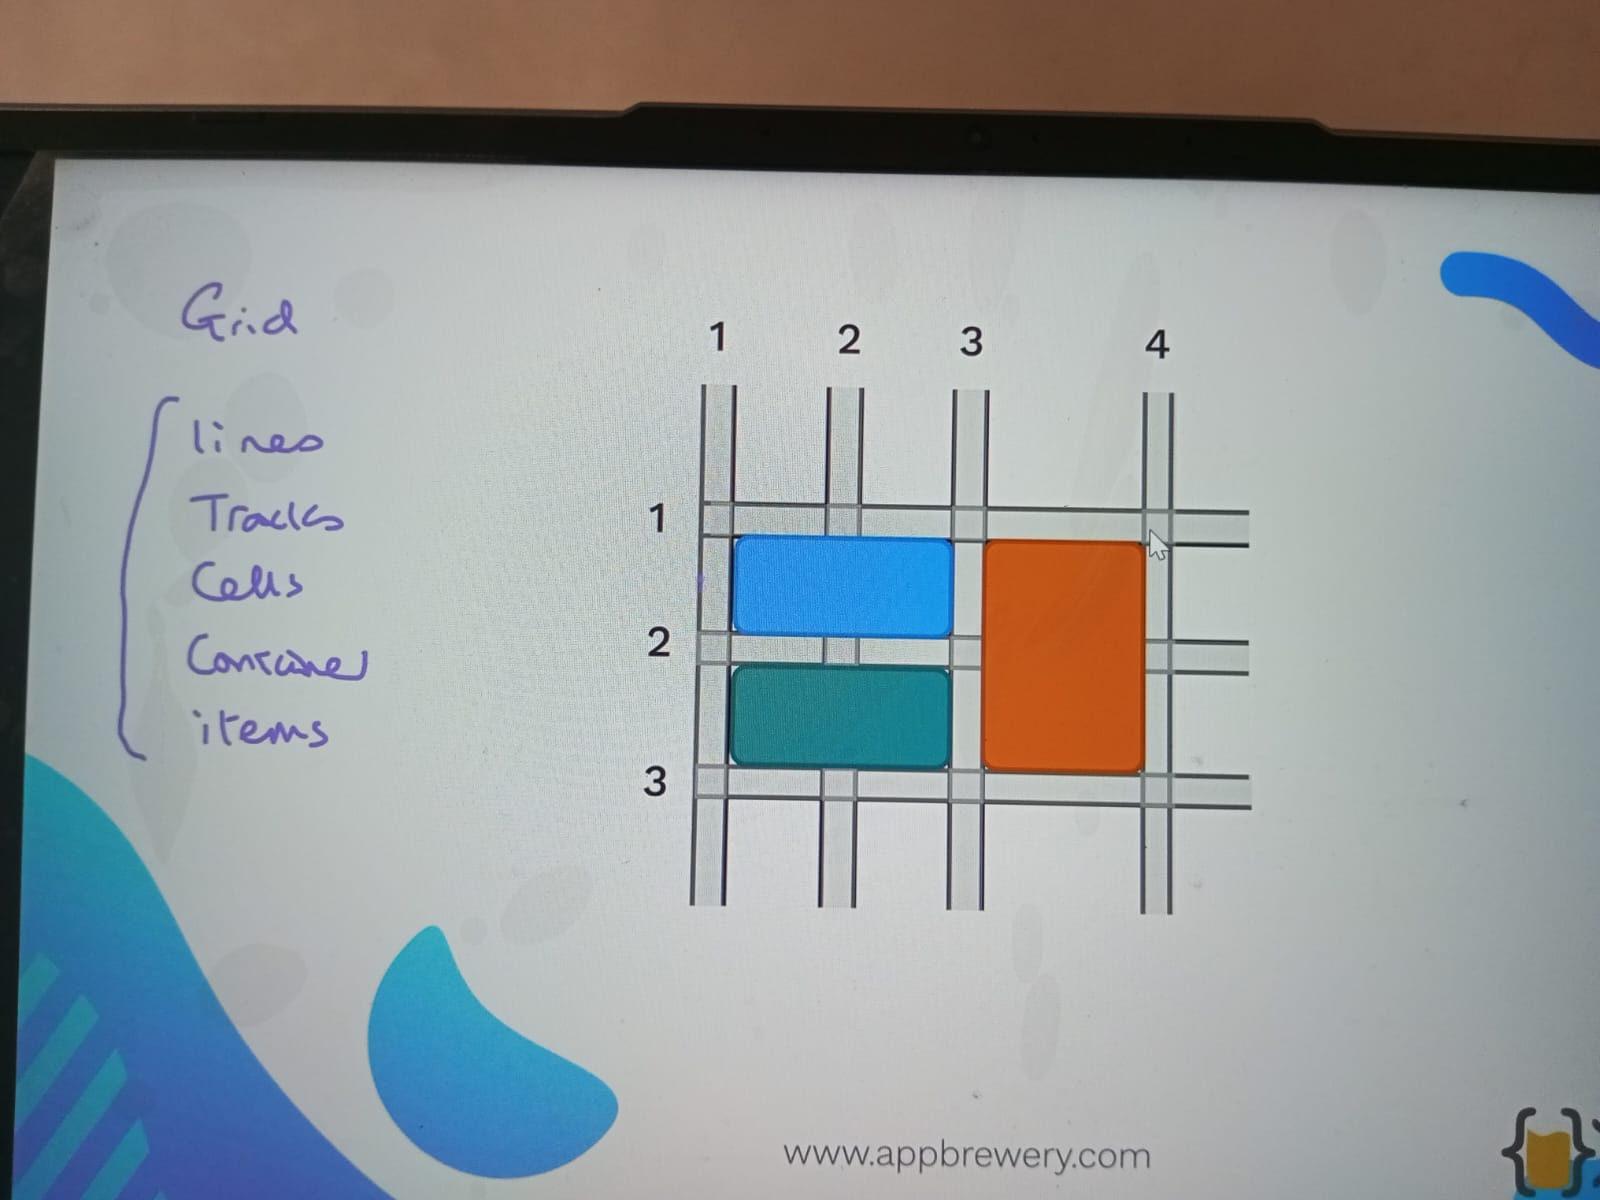 Grid
lines
Tracks
Cells
Container
items
1 2 3 4
1
2
3
www.appbrewery.com
{ }